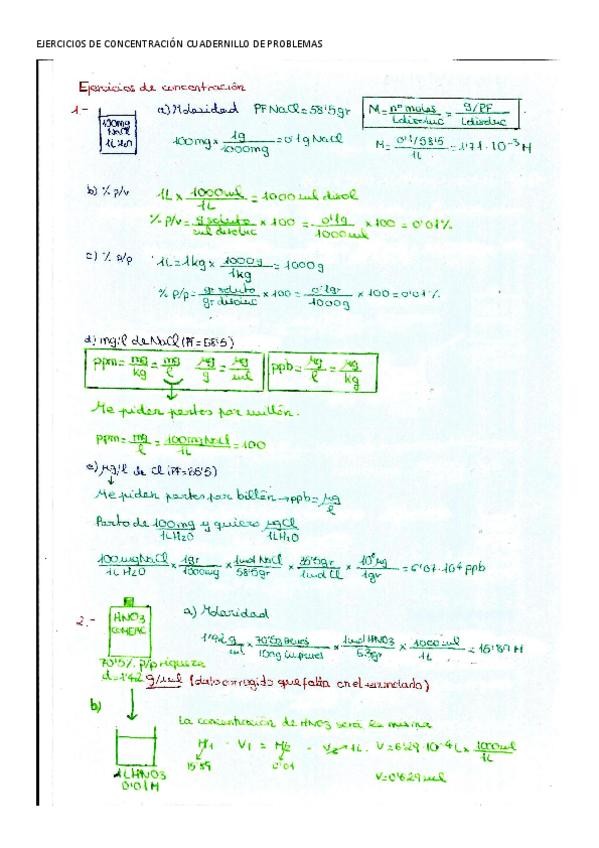 EJERCICIOS DE CONCENTRACIÓN CUADERNILLO DE PROBLEMAS
Ejercicios de concentración
1.-
100mg NaCl 1L H2O
a) Molaridad PF NaCl = 58'5gr M = nº moles / L disoluc = g/PF / L disoluc
100mg x 1g / 1000mg = 0'1g NaCl M = 0'1/58'5 / 1L = 1'71 · 10^-3 M
b) % p/v 1L x 1000ml / 1L = 1000ml disol
% p/v = g soluto / ml disoluc x 100 = 0'1g / 1000ml x 100 = 0'01%
c) % p/p 1L = 1kg x 1000g / 1kg = 1000g
% p/p = gr soluto / gr disoluc x 100 = 0'1gr / 1000g x 100 = 0'01%
d) mg/l de NaCl (PF = 58'5)
ppm = mg / kg = mg / l µg / g = µg / ml ppb = µg / l = µg / kg
Me piden partes por millón.
ppm = mg / l = 100mg NaCl / 1L = 100
e) µg/l de Cl
Me piden partes por billón → ppb = µg / l
Parto de 100mg / 1L H2O y quiero µg Cl / 1L H2O
100mg NaCl / 1L H2O x 1gr / 1000mg x 1mol NaCl / 58'5gr x 35'5gr / 1mol Cl x 10^6 µg / 1gr = 6'07 · 10^4 ppb
2.-
HNO3
a) Molaridad
1'42 g / ml x 1mol HNO3 / 63gr x 1000ml / 1L = 15'89 M
70'5% p/p riqueza
d = 1'42 g/ml (dato corregido que falta en el enunciado)
b)
La concentración de HNO3 será la misma
M1 · V1 = M2 · V2 → 1L V = 6'29 · 10^-4 L x 1000ml / 1L
15'89 0'01
1L HNO3
0'01 M
V = 0'629 ml